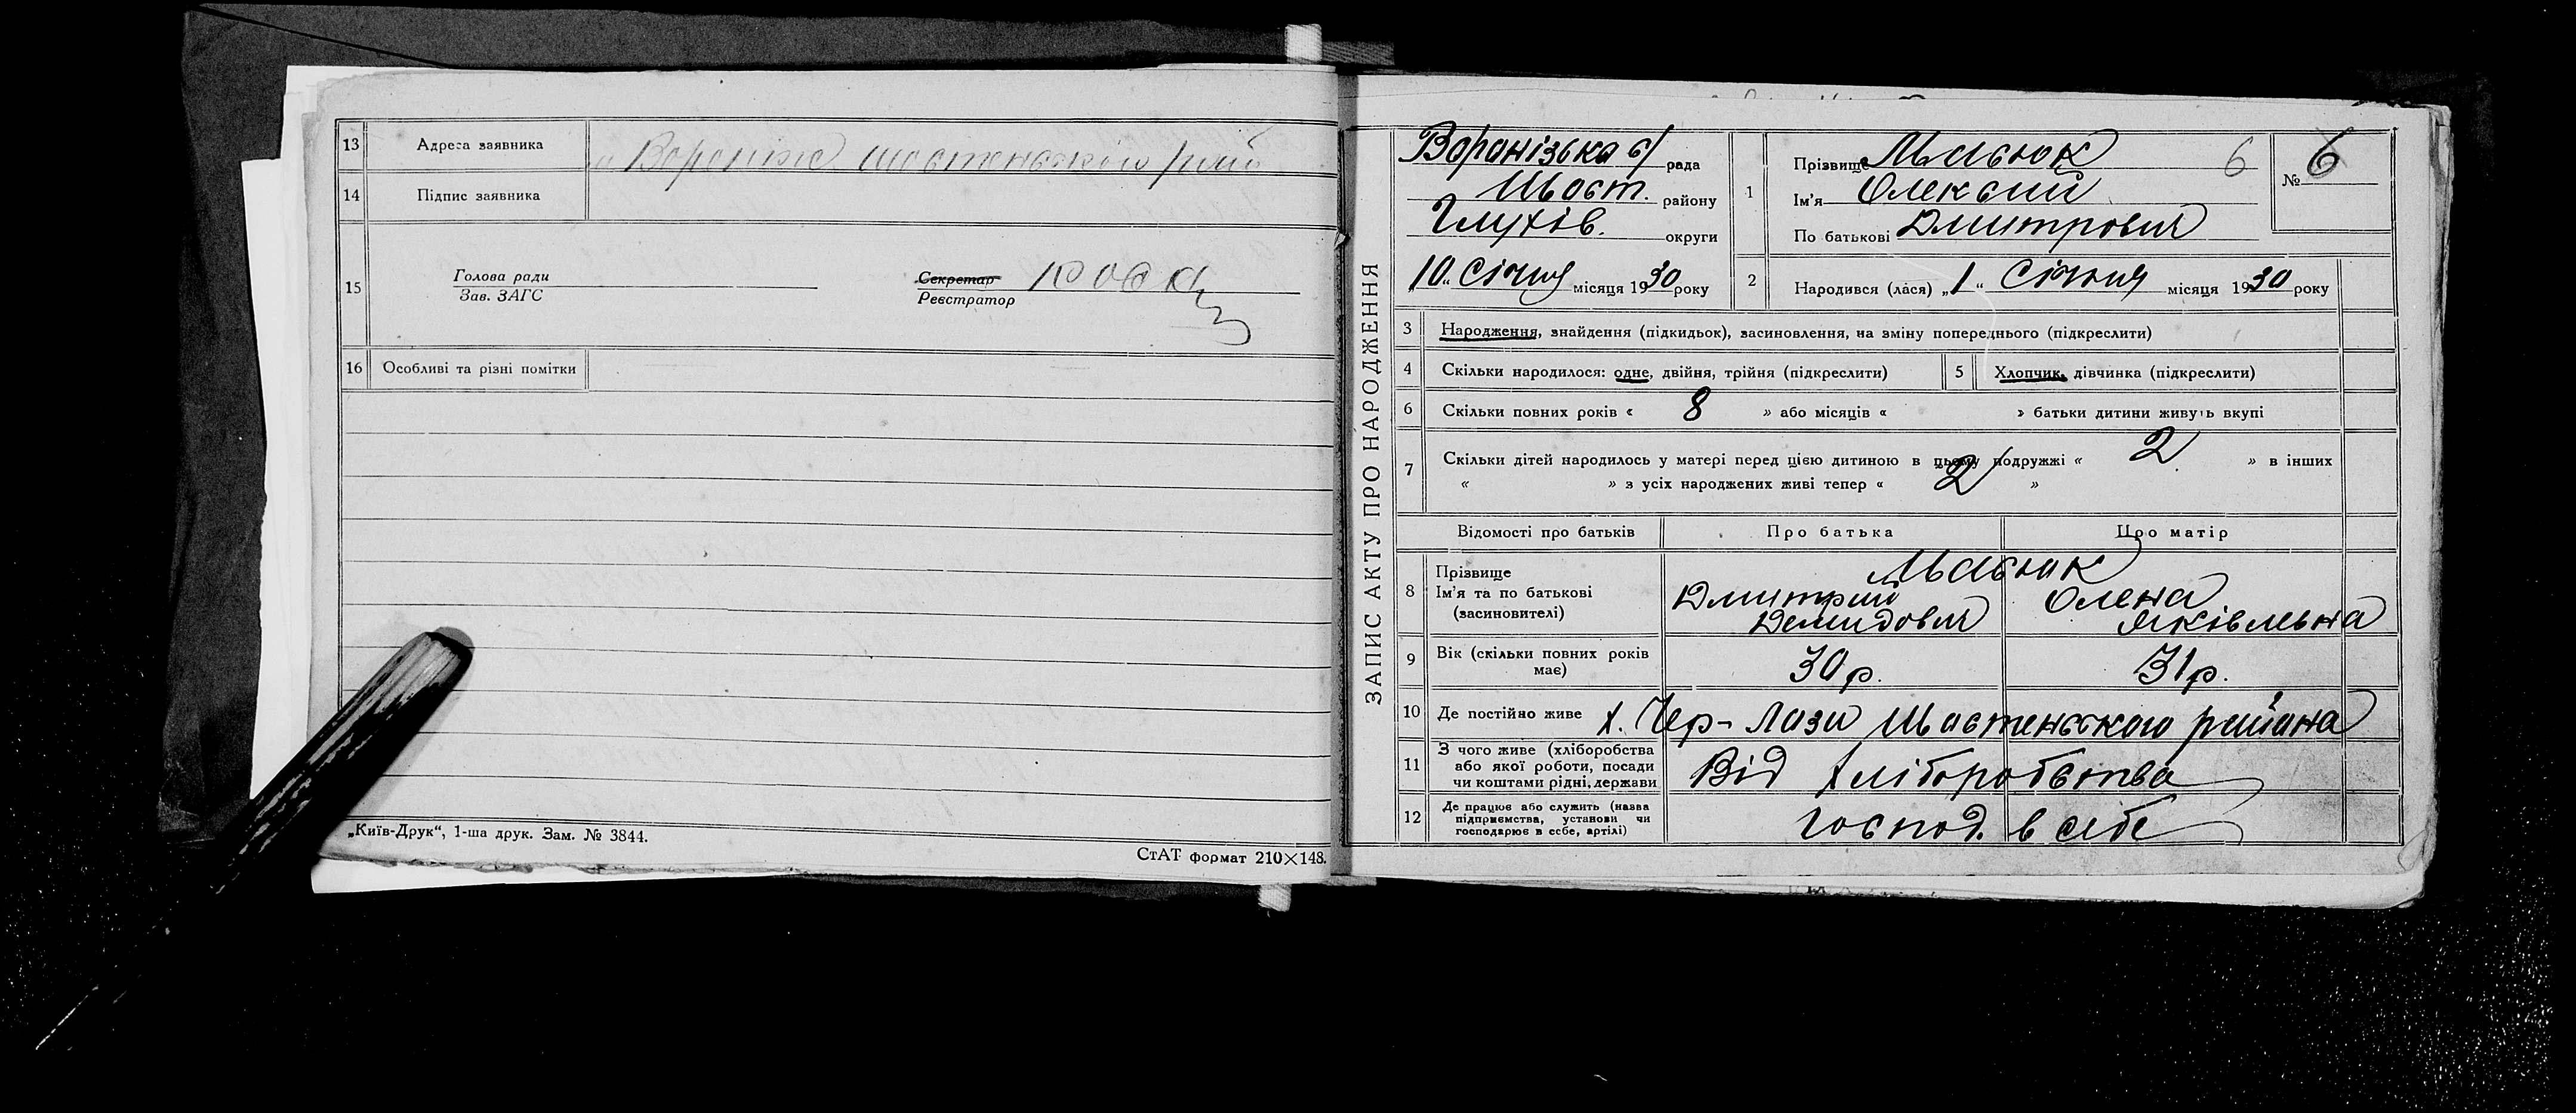 13 Адреса заявника Вороніж Шостенського рай
14 Підпис заявника
15 Голова ради
Зав. ЗАГС
Секретар
Реєстратор
16 Особливі та різні помітки
„Київ-Друк“, 1-ша друк. Зам. № 3844.
СтАТ формат 210×148.
ЗАПИС АКТУ ПРО НАРОДЖЕННЯ
Воронізька с/ рада
Шост. району
Глухів. округи
„10“ Січня місяця 1930 року
1 Прізвище 6
Ім'я Олексий
По батькові Дмитрович
№ 6
2 Народився (лася) „1“ Січня місяця 1930 року
3 Народження, знайдення (підкидьок), засиновлення, на зміну попереднього (підкреслити)
4 Скільки народилося: одне, двійня, трійня (підкреслити)
5 Хлопчик, дівчинка (підкреслити)
6 Скільки повних років « 8 » або місяців « » батьки дитини живуть вкупі
7 Скільки дітей народилось у матері перед цією дитиною в цьому подружжі « 2 » в інших
« » з усіх народжених живі тепер « 2 »
Відомості про батьків Про батька Про матір
8 Прізвище
Ім'я та по батькові
(засиновителі)
Дмитрий Олена
Демидович Яківльвна
9 Вік (скільки повних років
має)
30 р. 31 р.
10 Де постійно живе х. Чер-Лози Шостенського района
11 З чого живе (хліборобства
або якої роботи, посади
чи коштами рідні, держави
Від хліборобства
12 Де працює або служить (назва
підприємства, установи чи
господарює в себе, артілі)
господ. в себе